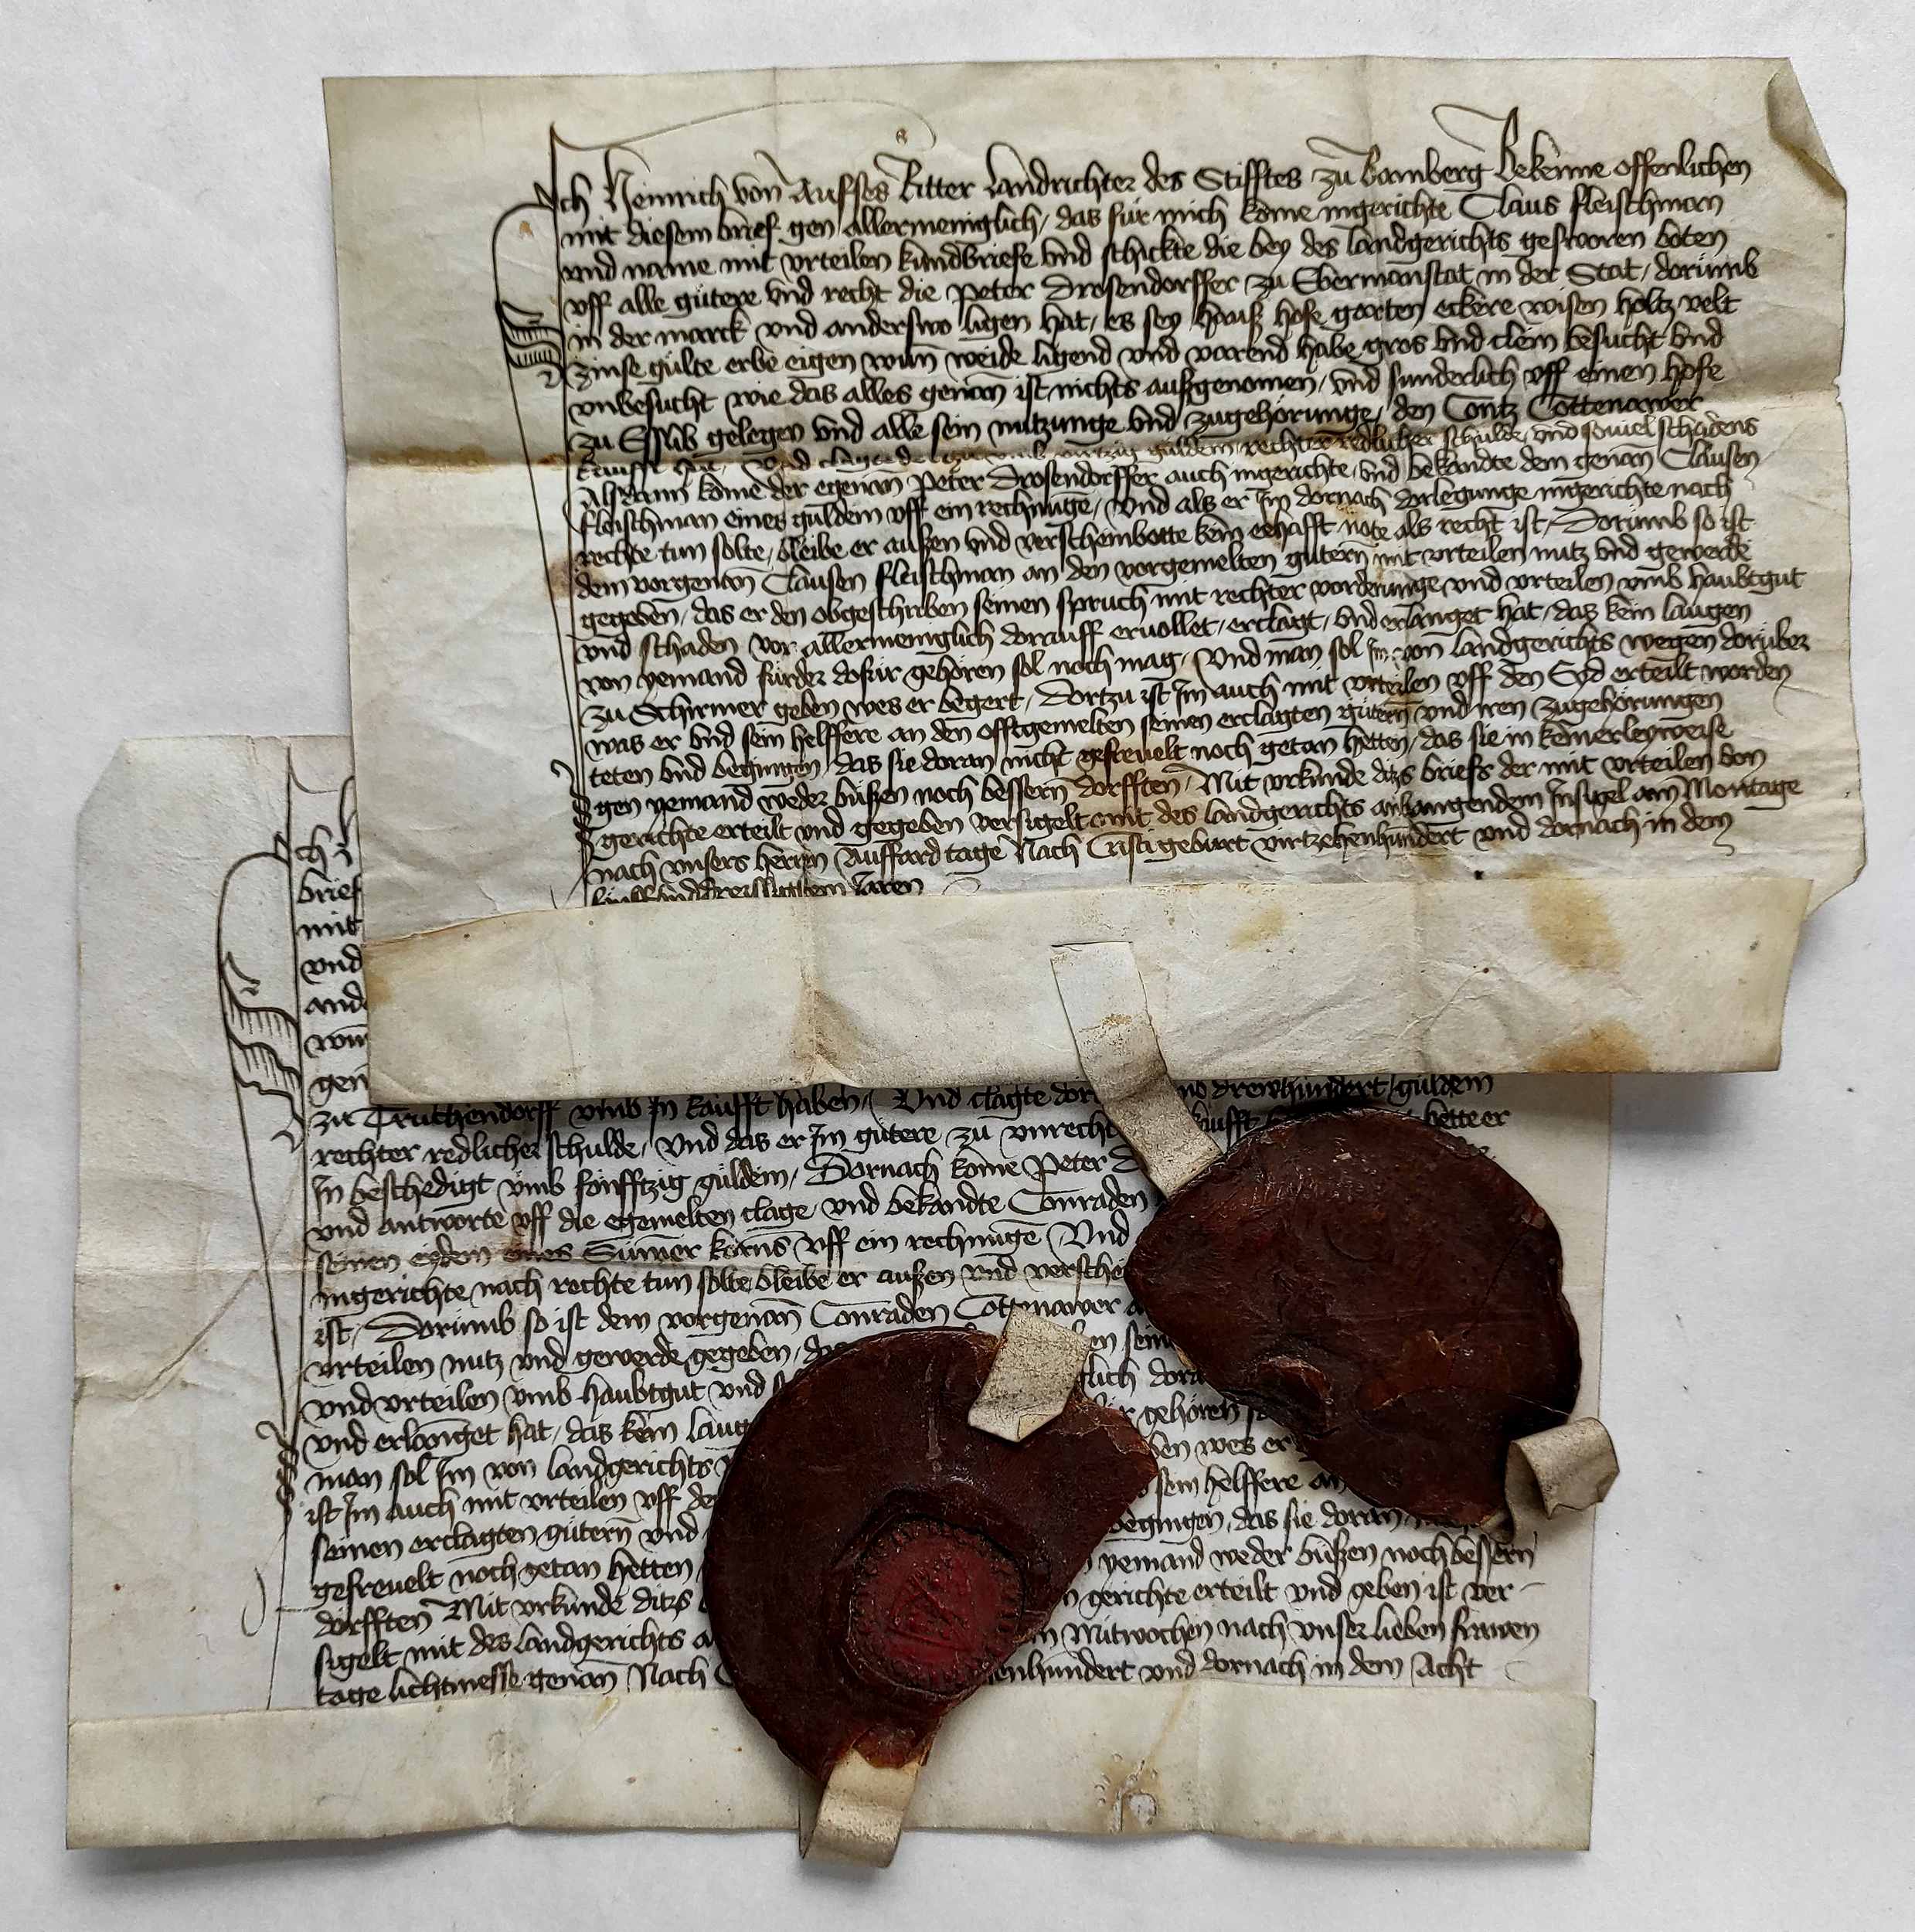 Ich Heinrich von Aufses Ritter Landrichter des Stifftes zu Bamberg Bekenne offenlichen
mit diesem brief gen allermeniglich, das für mich kome ingerichte Claus fleischman
vnd name mit vrteilen kundbriefe vnd schickte die bey des landgerichts gesworen boten
vff alle gütere vnd recht die Peter Drosendorffer zu Ebermanstat in der Stat, dorümb
in der marck vnd anderswo ligen hat, es sey hauß hofe garten eckere wisen holtz velt
zinse gülte erbe eigen wun weide ligend vnd varend habe gros vnd clein besucht vnd
vnbesucht wie das alles genan ist nichts außgenomen, vnd sunderlich vff einen hofe
zu Efflib gelegen vnd alle sein nutzunge vnd zugehörunge, den Contz Cottenawer
kaufft hat, Vnd clagte guldein rechter redlicher schulde, vnd souiel schadens
Alsdann kome der egenan Peter Drosendorffer auch ingerichte, vnd bekandte dem genan Clausen
fleischman eines guldein vff ein rechnuge, Vnd als er Im dornach dorlegunge ingerichte nach
rechte tun solte, bleibe er außen vnd verscheinbotte kein eehafft note als recht ist, Dorümb so ist
dem vorgenan Clausen fleischman an den vorgemelten gütern mit vrteilen nutz vnd gewerde
gegeben, das er den obgeschriben seinen spruch mit rechter vorderunge vnd vrteilen vmb haubtgut
vnd schaden vor allermeniglich dorauff eruollet, erclagt, vnd erlanget hat, das kein laugen
von yemand fürder dofür gehören sol noch mag, Vnd man sol Im von landgerichts wegen dorüber
zu Schirmer geben wes er begert, Dortzu ist Im auch mit vrteilen vff den Eyd erteilt worden
was er vnd sein helffere an den offtgemelten seinen erclagten gütern vnd iren zugehörungen
teten vnd begingen, das sie doran nicht gefreuelt noch getan hetten, das sie in keinerleyweise
gen yemand weder büßen noch bessern dorfften, Mit vrkunde ditzs briefs der mit vrteilen von
gerichte erteilt vnd gegeben versigelt mit des landgerichts anhangendem Insigel am Montage
nach vnsers herrn Auffard tage Nach Cristi geburt virtzehenhundert vnd dornach in dem
fünffvnddreissigstem Jaren
Ich
brief
mit
vnd
ande
wun
gen
zu Truchendorff vmb In kaufft haben, Vnd clagte drewhundert guldein
rechter redlicher schulde, Vnd das er Im gütere zu vnrecht kaufft hette er
In beschedigt vmb fünfftzig guldein, Dornach kome Peter
vnd antworte vff die egemelten clage, vnd bekandte Conraden
seinen eydem eines Sümer korns vff ein rechnuge Vnd
ingerichte nach rechte tun solte bleibe er außen vnd versche
ist, Dorümb so ist dem vorgenan Conraden Cottenawer
vrteilen nutz vnd gewerde gegeben, den sein
vnd vrteilen vmb haubtgut vnd glich dora
vnd erlanget hat, das kein laug für gehören
man sol Im von landgerichts ben wes er
ist Im auch mit vrteilen vff de sein helffere an
seinen erclagten gütern vnd begingen, das sie doran
gefreuelt noch getan hetten yemand weder büßen noch bessern
dorfften Mit vrkunde ditzs gerichte erteilt vnd geben ist ver
sigelt mit des landgerichts Mitwochen nach vnser lieben frawen
tage lichtmesse genan Nach enhundert vnd dornach in dem Acht